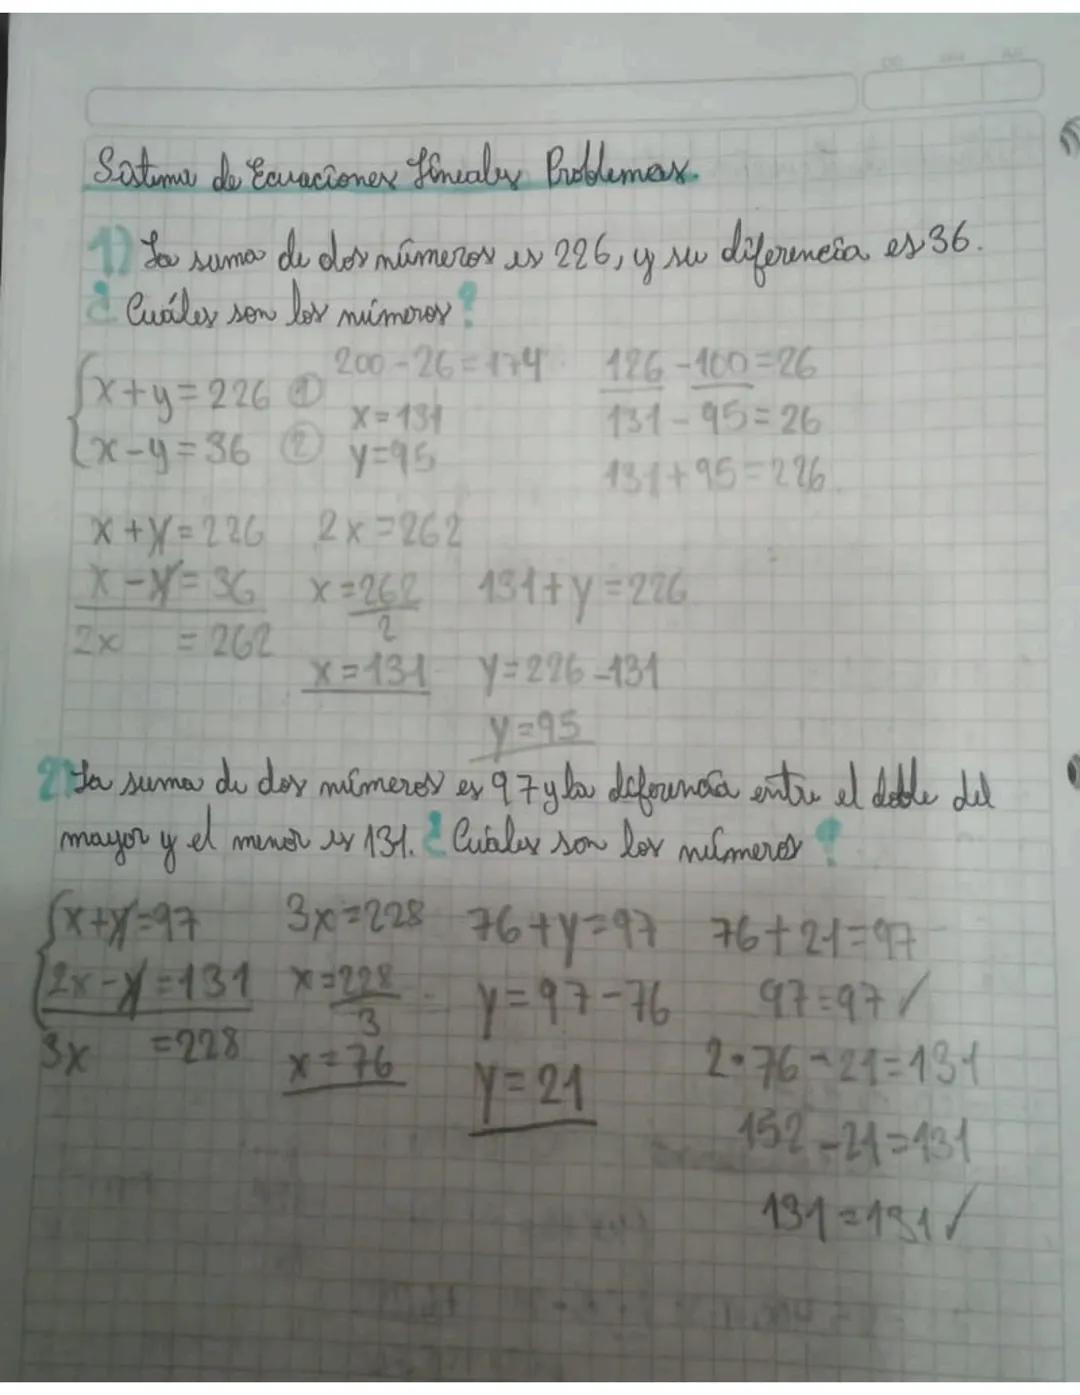 Sistema de Ecuaciones Lineales Problemas.
1) La suma de dos números es 226, y su diferencia es 36.
¿Cuáles son los números?
200-26=174 126-100=26
x+y=226 ① x=131 131-95=26
x-y=36 ② y=95 131+95=226
x+y=226 2x=262
x-y=36 x=262/2 131+y=226
2x =262
x=131 y=226-131
y=95
2) La suma de dos números es 97 y la diferencia entre el doble del
mayor y el menor es 131. ¿Cuáles son los números?
x+y=97 3x=228 76+y=97 76+21=97
2x-y=131 x=228/3 y=97-76 97=97 ✓
3x =228 x=76 y=21 2·76-21=131
152-21=131
131=131 ✓